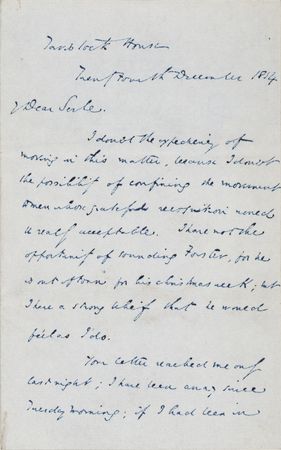 Tavistock House
Twenty Fourth December 1854
My Dear Serle.
I doubt the expediency of
moving in this matter, because I doubt
the possibility of confining the movement
to men whose grateful recognition would
be really acceptable. I have not the
opportunity of sounding Forster, for he
is out of town for his Christmas week; but
I have a strong belief that he would
feel as I do.
Your letter reached me only
last night; I have been away since
Tuesday morning; if I had been in